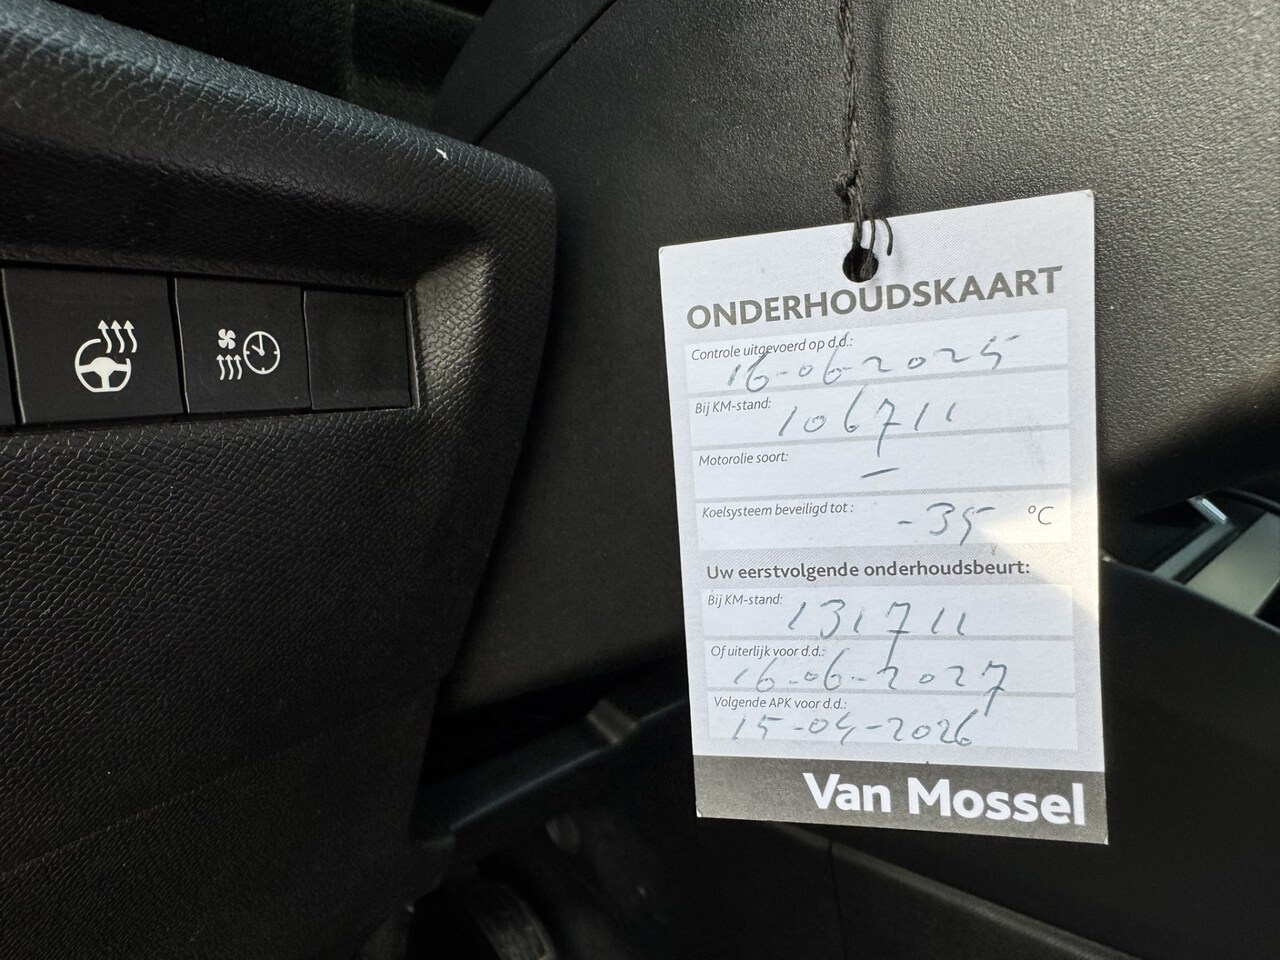 ONDERHOUDSKAART
Controle uitgevoerd op d.d.:
16-06-2025
Bij KM-stand:
106711
Motorolie soort:
–
Koelsysteem beveiligd tot:
-35 °C
Uw eerstvolgende onderhoudsbeurt:
Bij KM-stand:
131711
Of uiterlijk voor d.d.:
16-06-2027
Volgende APK voor d.d.:
15-04-2026
Van Mossel